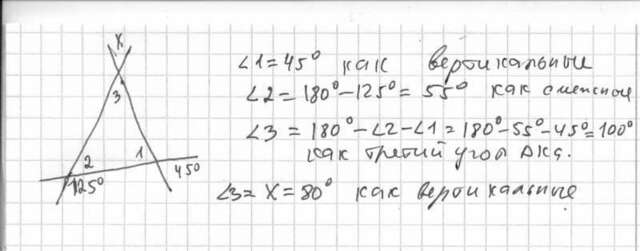 x
3
2
1
125°
45°
∠1=45° как вертикальные
∠2=180°-125°=55° как смежные
∠3=180°-∠2-∠1=180°-55°-45°=100°
как третий угол
∠3=X=80° как вертикальные